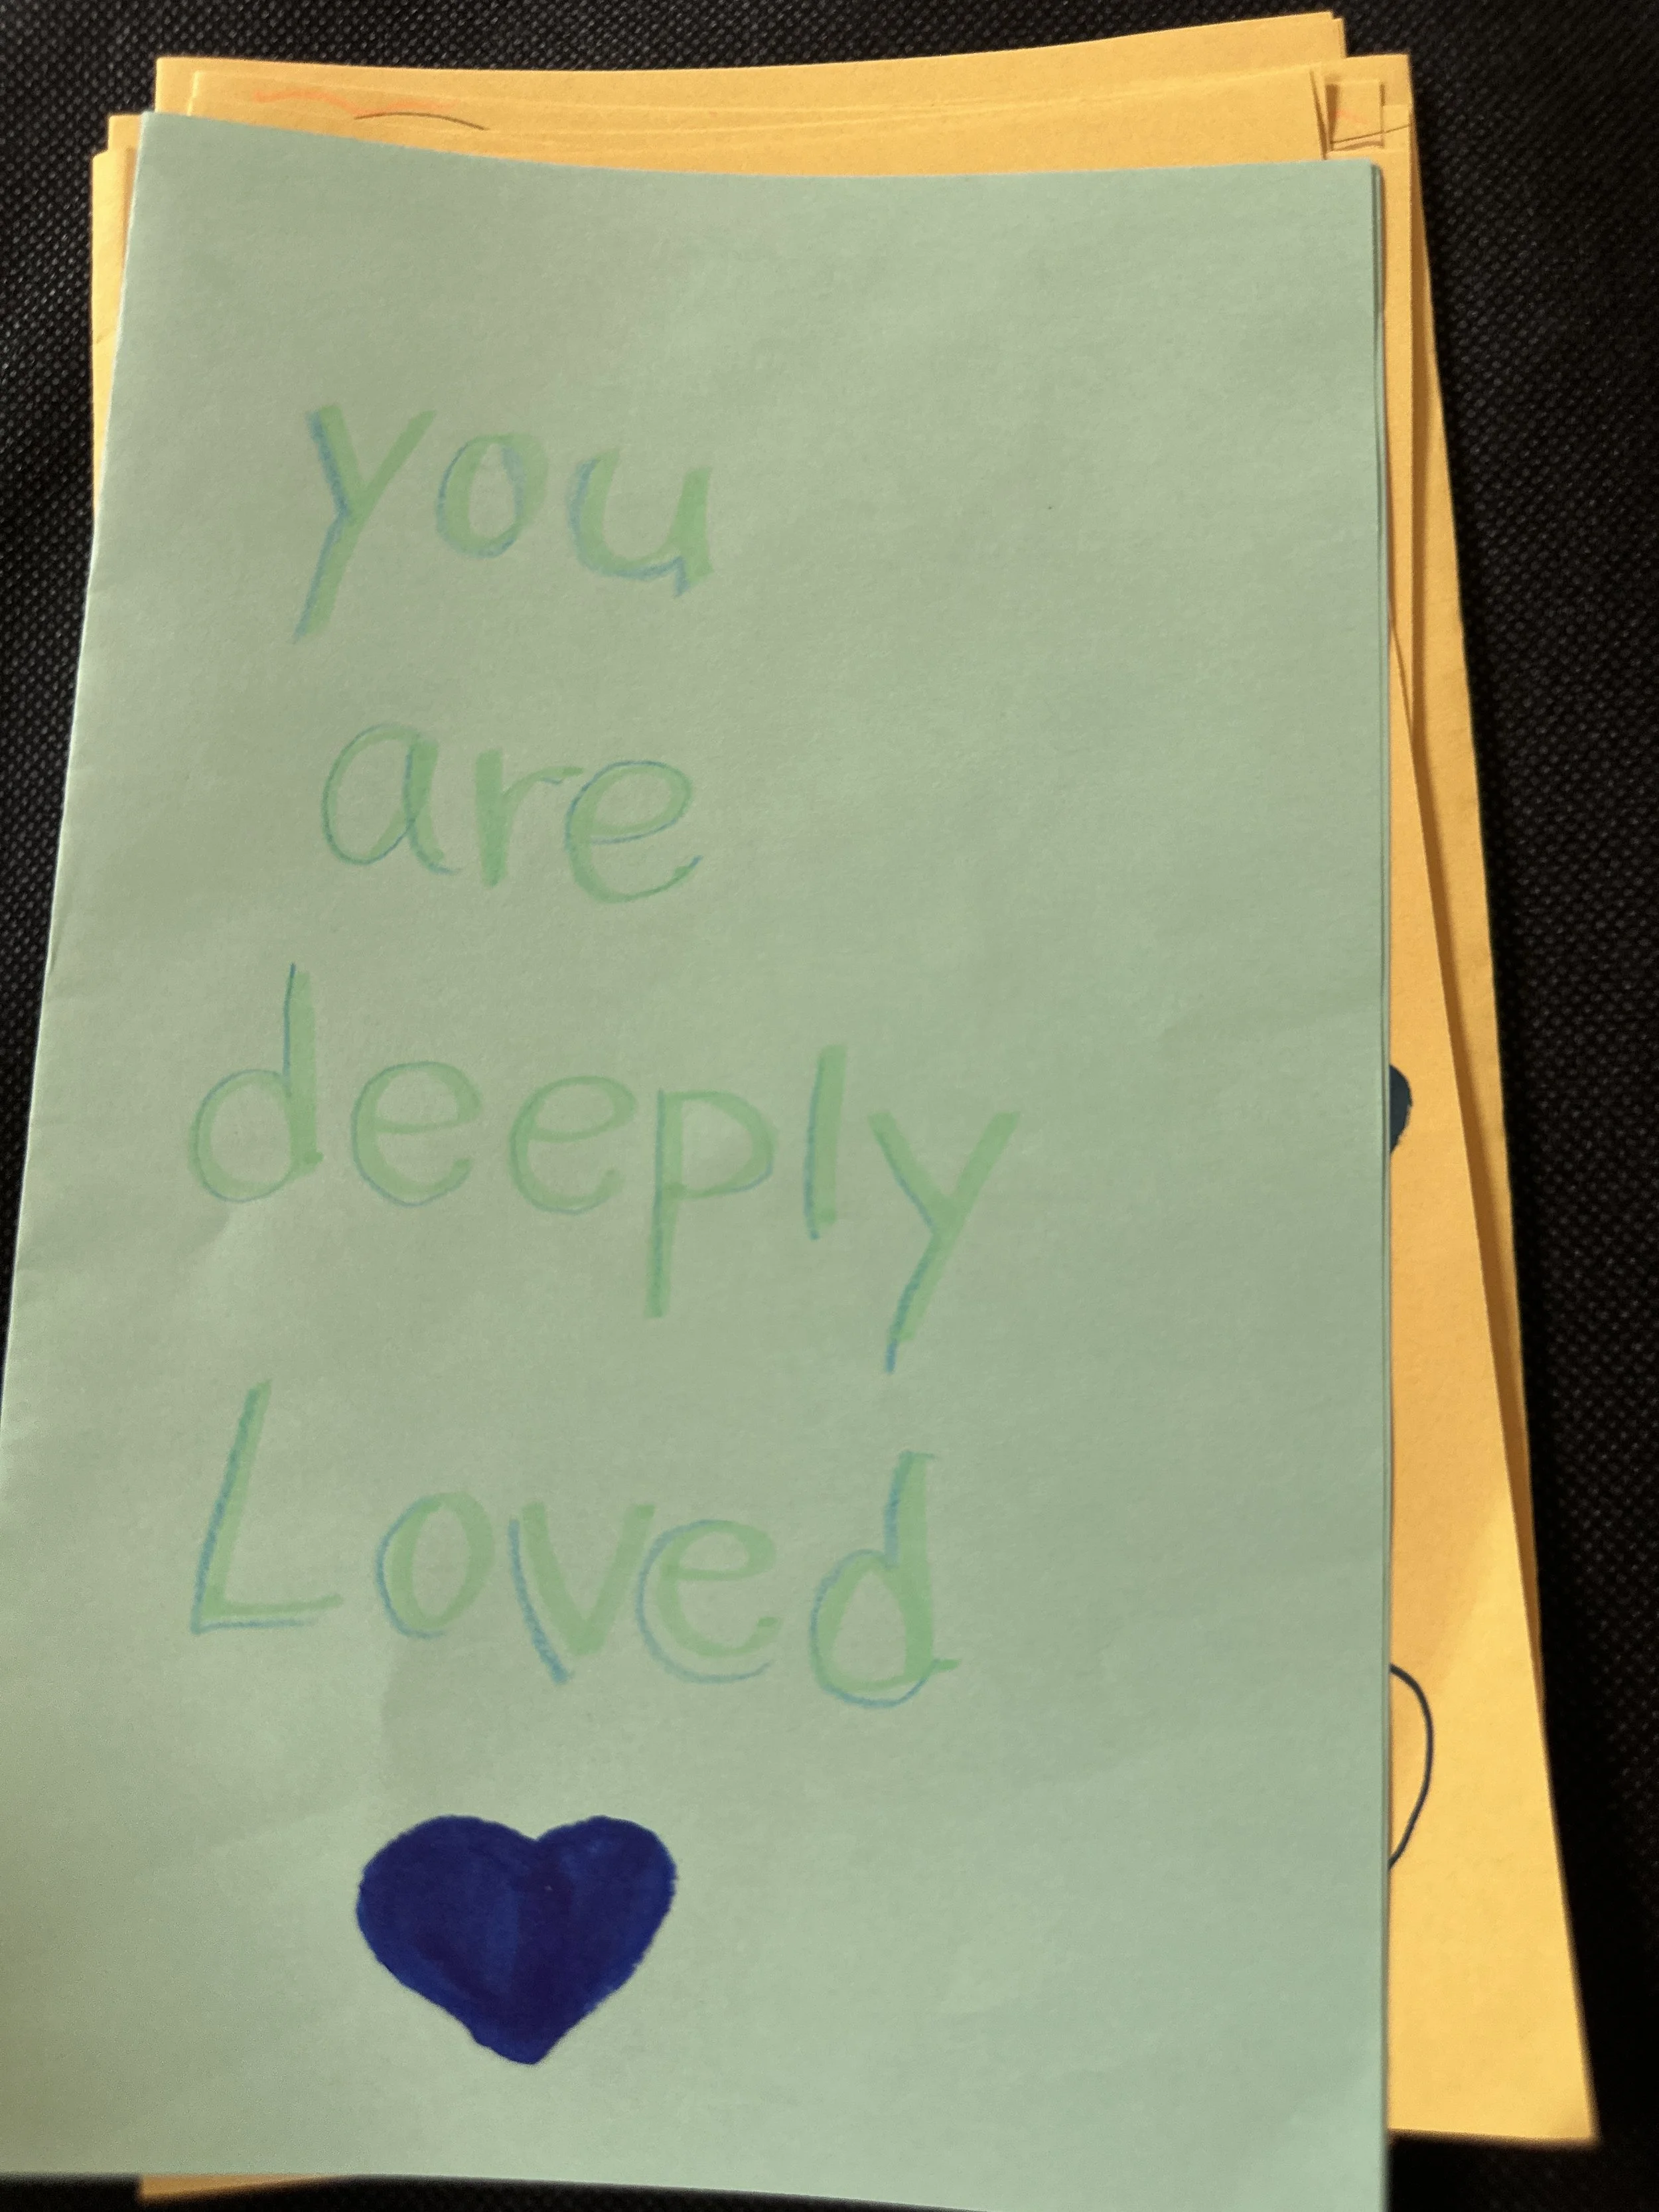 you
are
deeply
Loved